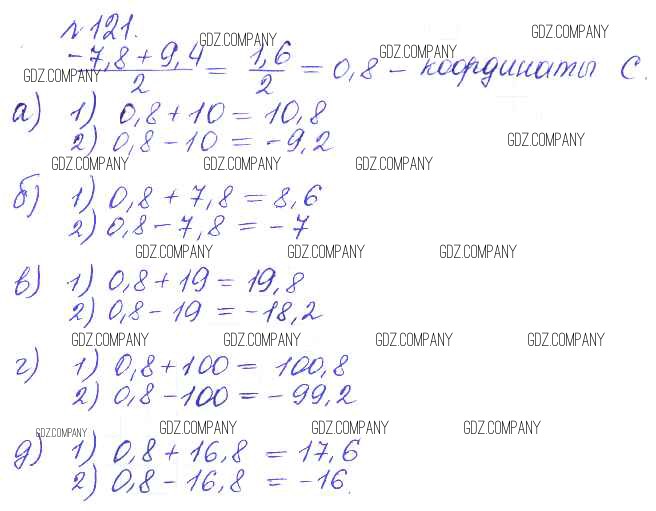 №121.
GDZ.COMPANY GDZ.COMPANY
(-7,8 + 9,4)/2 = 1,6/2 = 0,8 - координаты С.
GDZ.COMPANY GDZ.COMPANY
а) 1) 0,8 + 10 = 10,8
2) 0,8 - 10 = -9,2
GDZ.COMPANY
GDZ.COMPANY GDZ.COMPANY GDZ.COMPANY
б) 1) 0,8 + 7,8 = 8,6
2) 0,8 - 7,8 = -7
GDZ.COMPANY GDZ.COMPANY GDZ.COMPANY
в) 1) 0,8 + 19 = 19,8
2) 0,8 - 19 = -18,2
GDZ.COMPANY GDZ.COMPANY GDZ.COMPANY GDZ.COMPANY
г) 1) 0,8 + 100 = 100,8
2) 0,8 - 100 = -99,2
GDZ.COMPANY GDZ.COMPANY GDZ.COMPANY GDZ.COMPANY
д) 1) 0,8 + 16,8 = 17,6
2) 0,8 - 16,8 = -16.